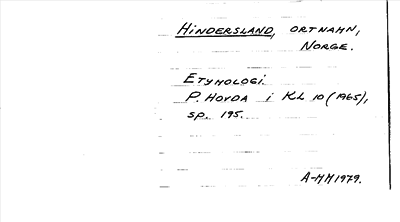 HINDERSLAND, ORTNAMN,
NORGE.
ETYMOLOGI.
P. HOVDA i KL 10 (1965),
sp. 195.
A-MM1979.